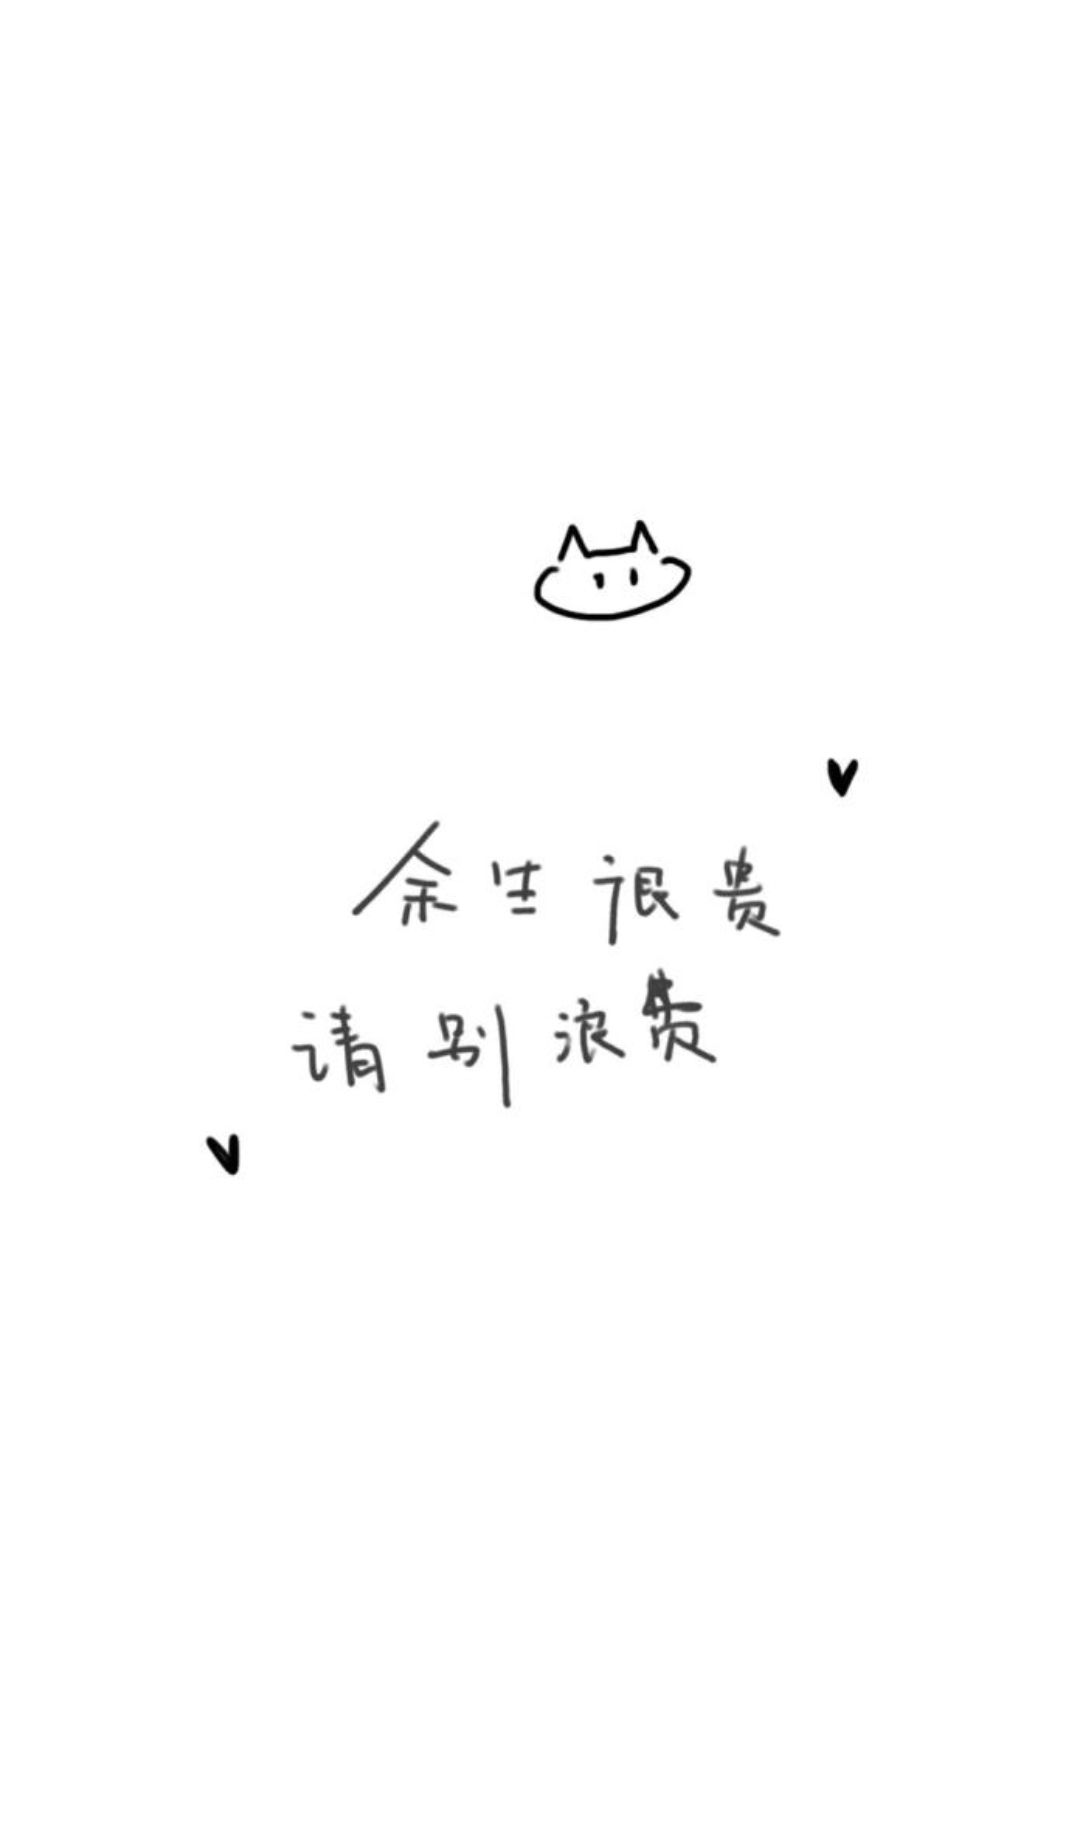 余生很贵
请别浪费